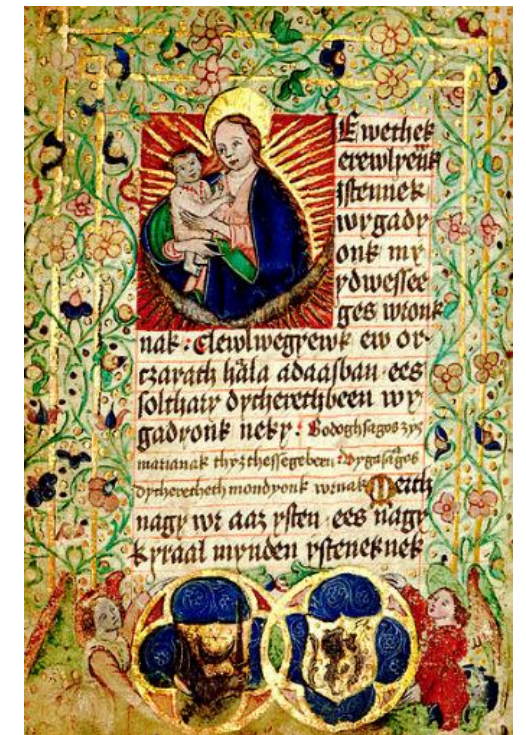 Ewethek
erewlyenk
istennek
wygady
onk my
ydwessee
ges wronk
nak : Elewlwegyewk ew or-
czarath hala adaasban ees
solthary dycherethbeen wy
gadyonk neky : Bodoghsagos zyz
marianak thyzthessegebeen : Vygasagos
dycheretheth mondyonk wrnak Merth
nagy wr aaz ysten ees nagy
kyraal mynden ysteneknek